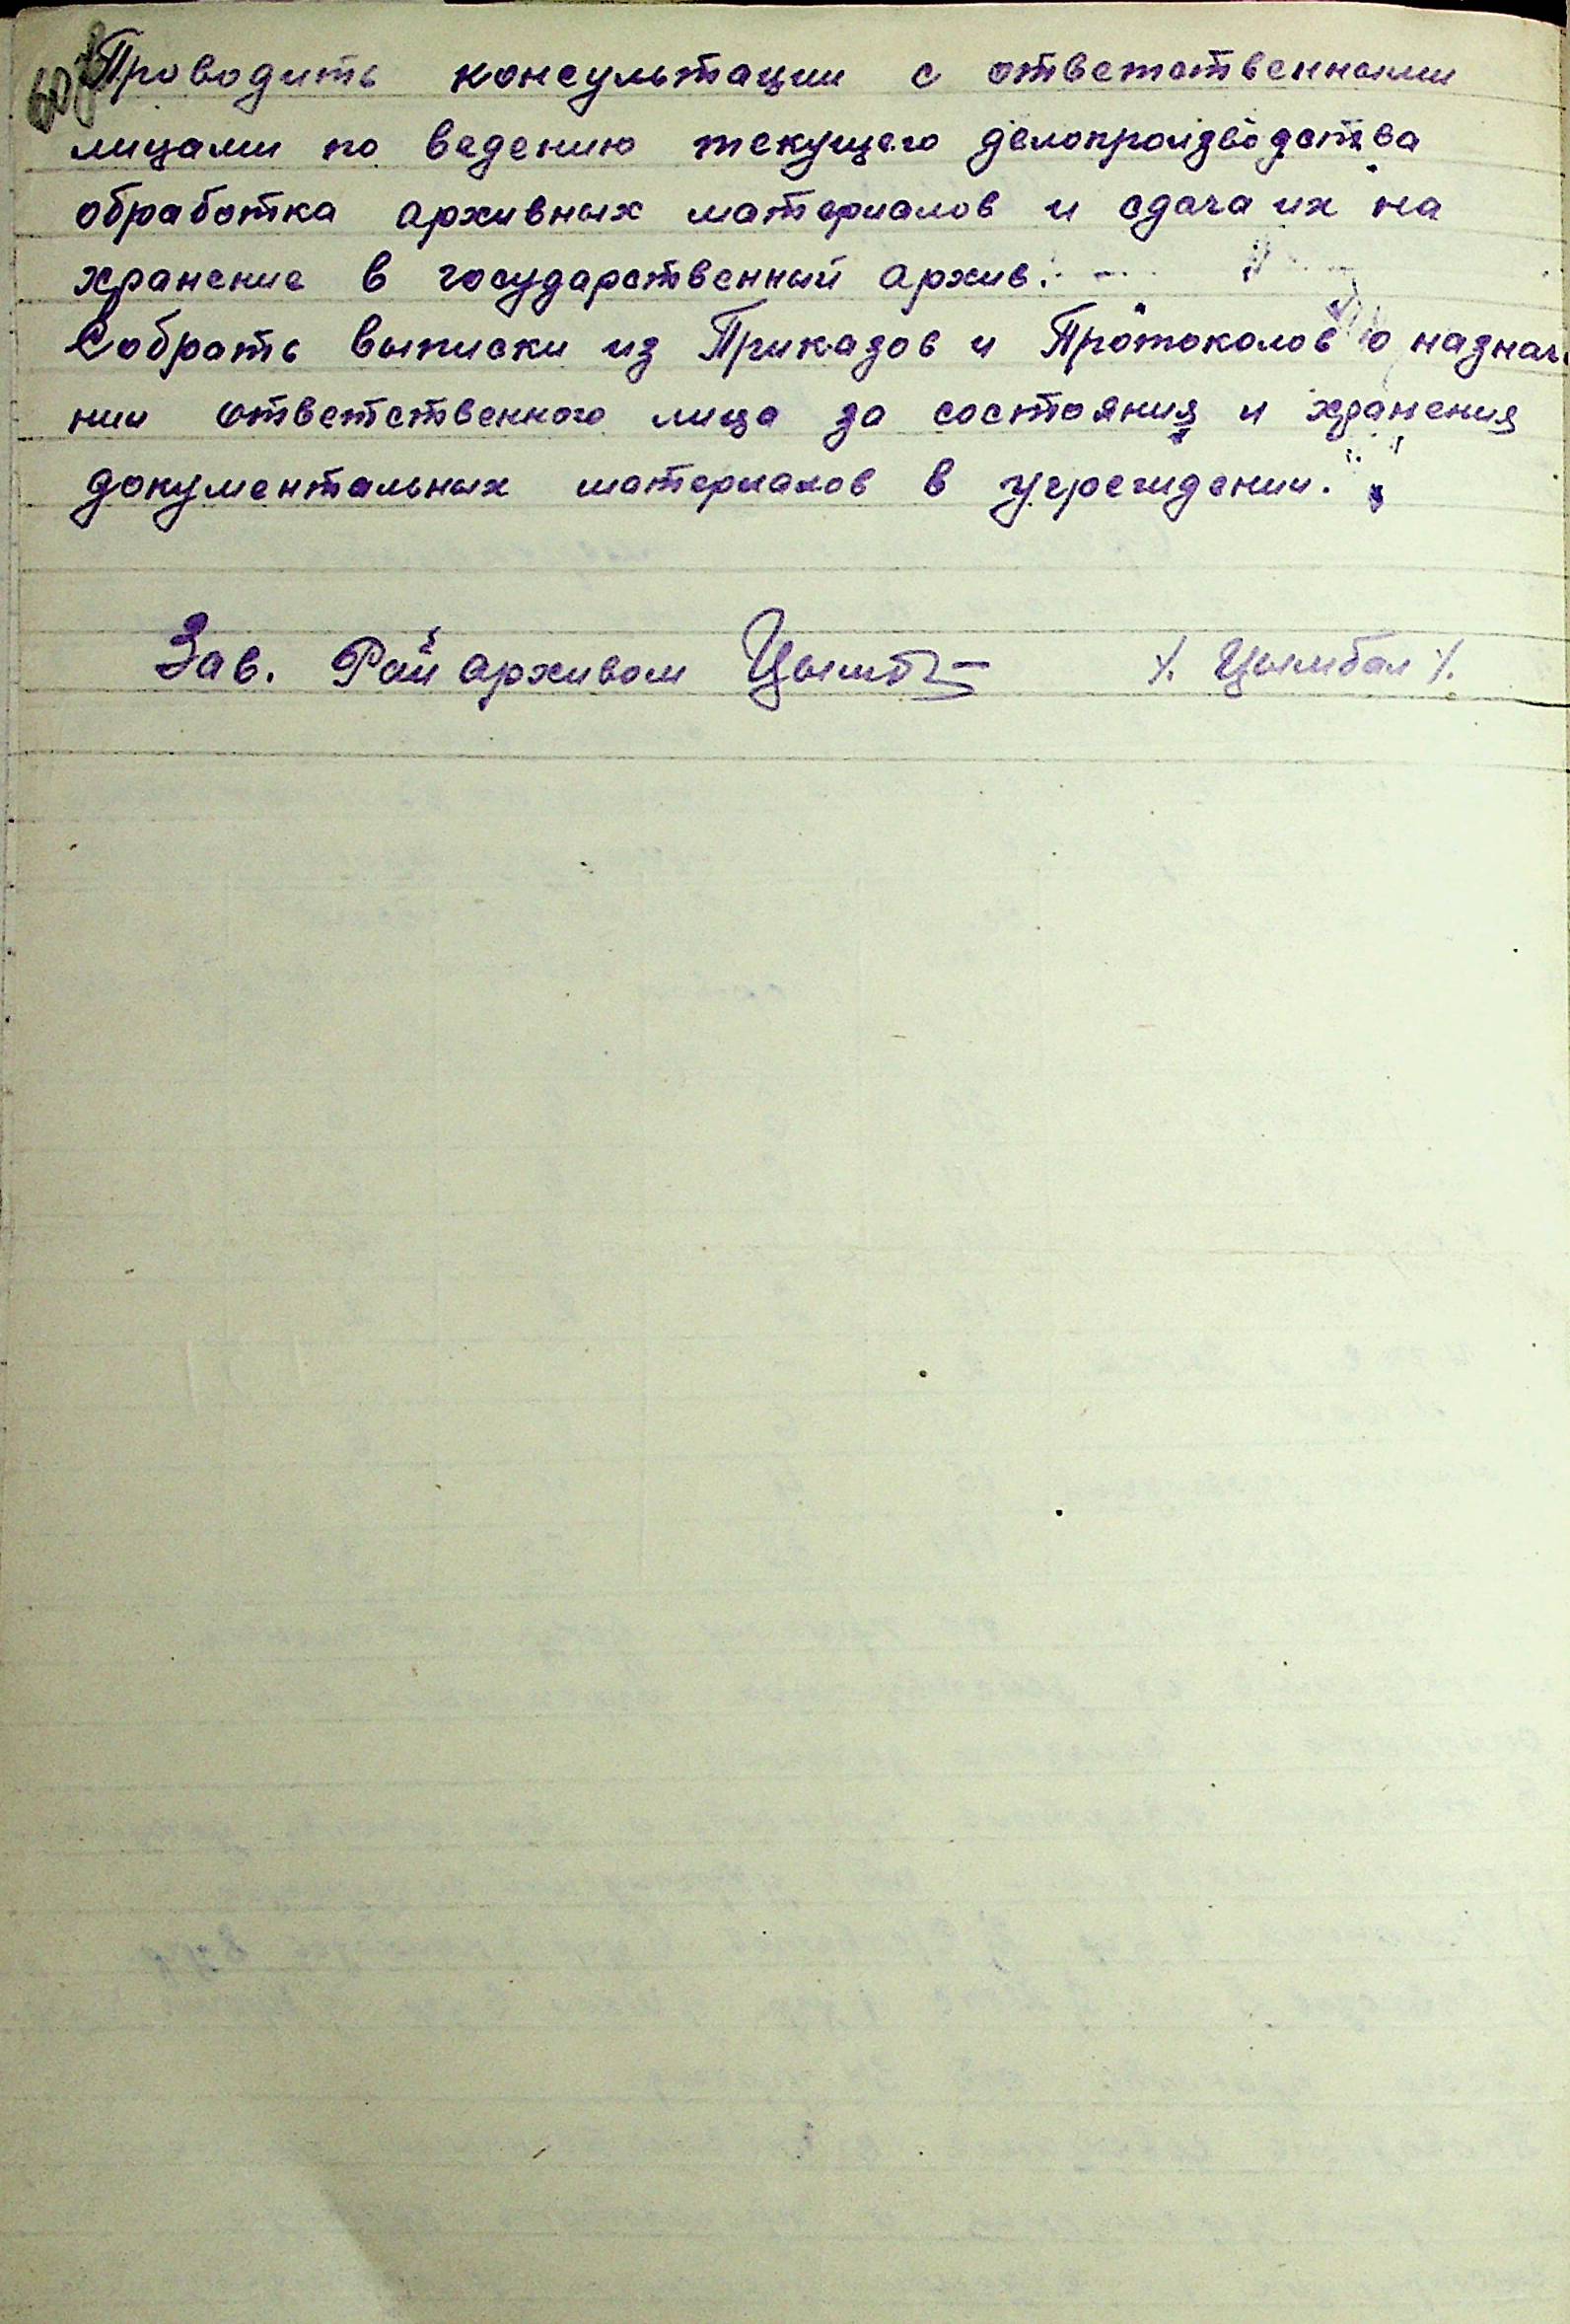 Проводить консультации с ответственными
лицами по ведению текущего делопроизводства
обработка архивных материалов и сдача их на
хранение в государственный архив. -
Собрать выписки из Приказов и Протоколов о назначе
нии ответственного лица за состояния и хранения
документальных материалов в учреждении.
Зав. Рай архивом Цымб /. Цымбал /.